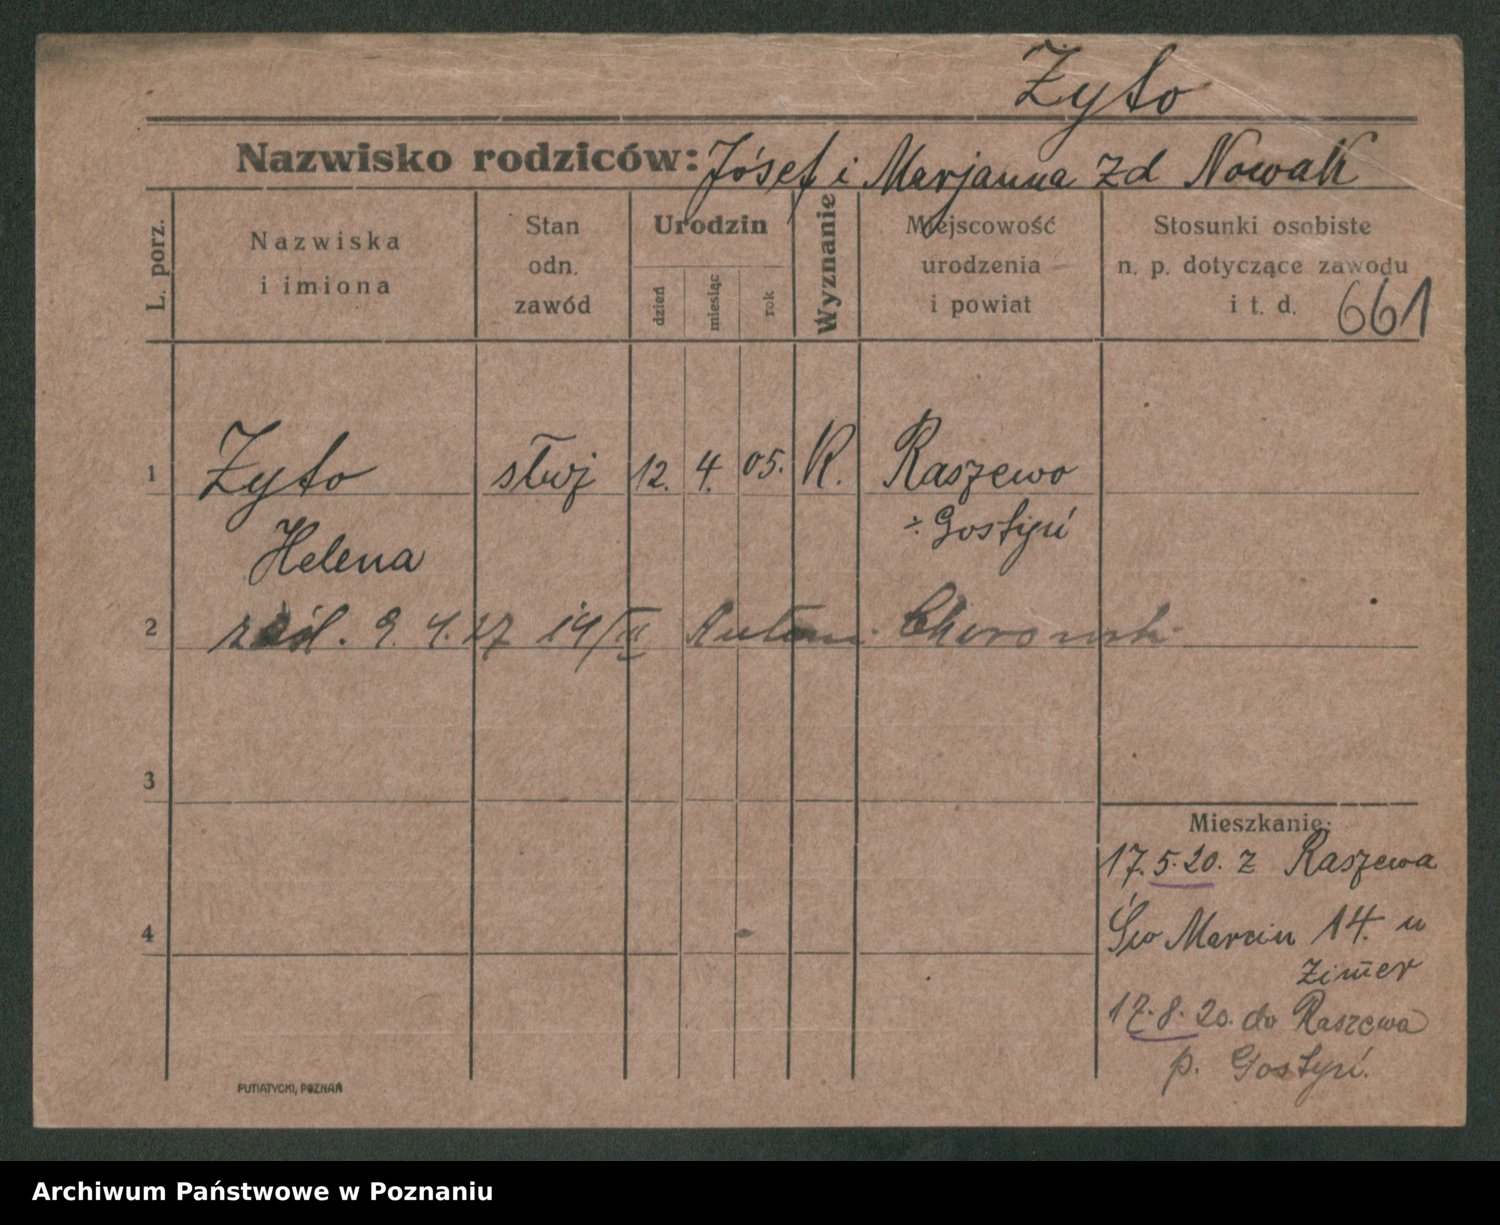 Żyto
Nazwisko rodziców: Józef i Marjanna zd Nowak
L. porz.
Nazwiska
i imiona
Stan
odn.
zawód
Urodzin
dzień
miesiąc
rok
Wyznanie
Miejscowość
urodzenia
i powiat
Stosunki osobiste
n. p. dotyczące zawodu
i t. d. 661
1 Żyto służ 12. 4. 05. R. Raszewo
Helena
÷ Gostyń
2 9. 4. 27 14/II
3
4
Mieszkanie:
17. 5. 20. z Raszewa
Św Marcin 14. u
Zim̅er
17. 8. 20. do Raszewa
p. Gostyń.
PUTIATYCKI, POZNAŃ
Archiwum Państwowe w Poznaniu